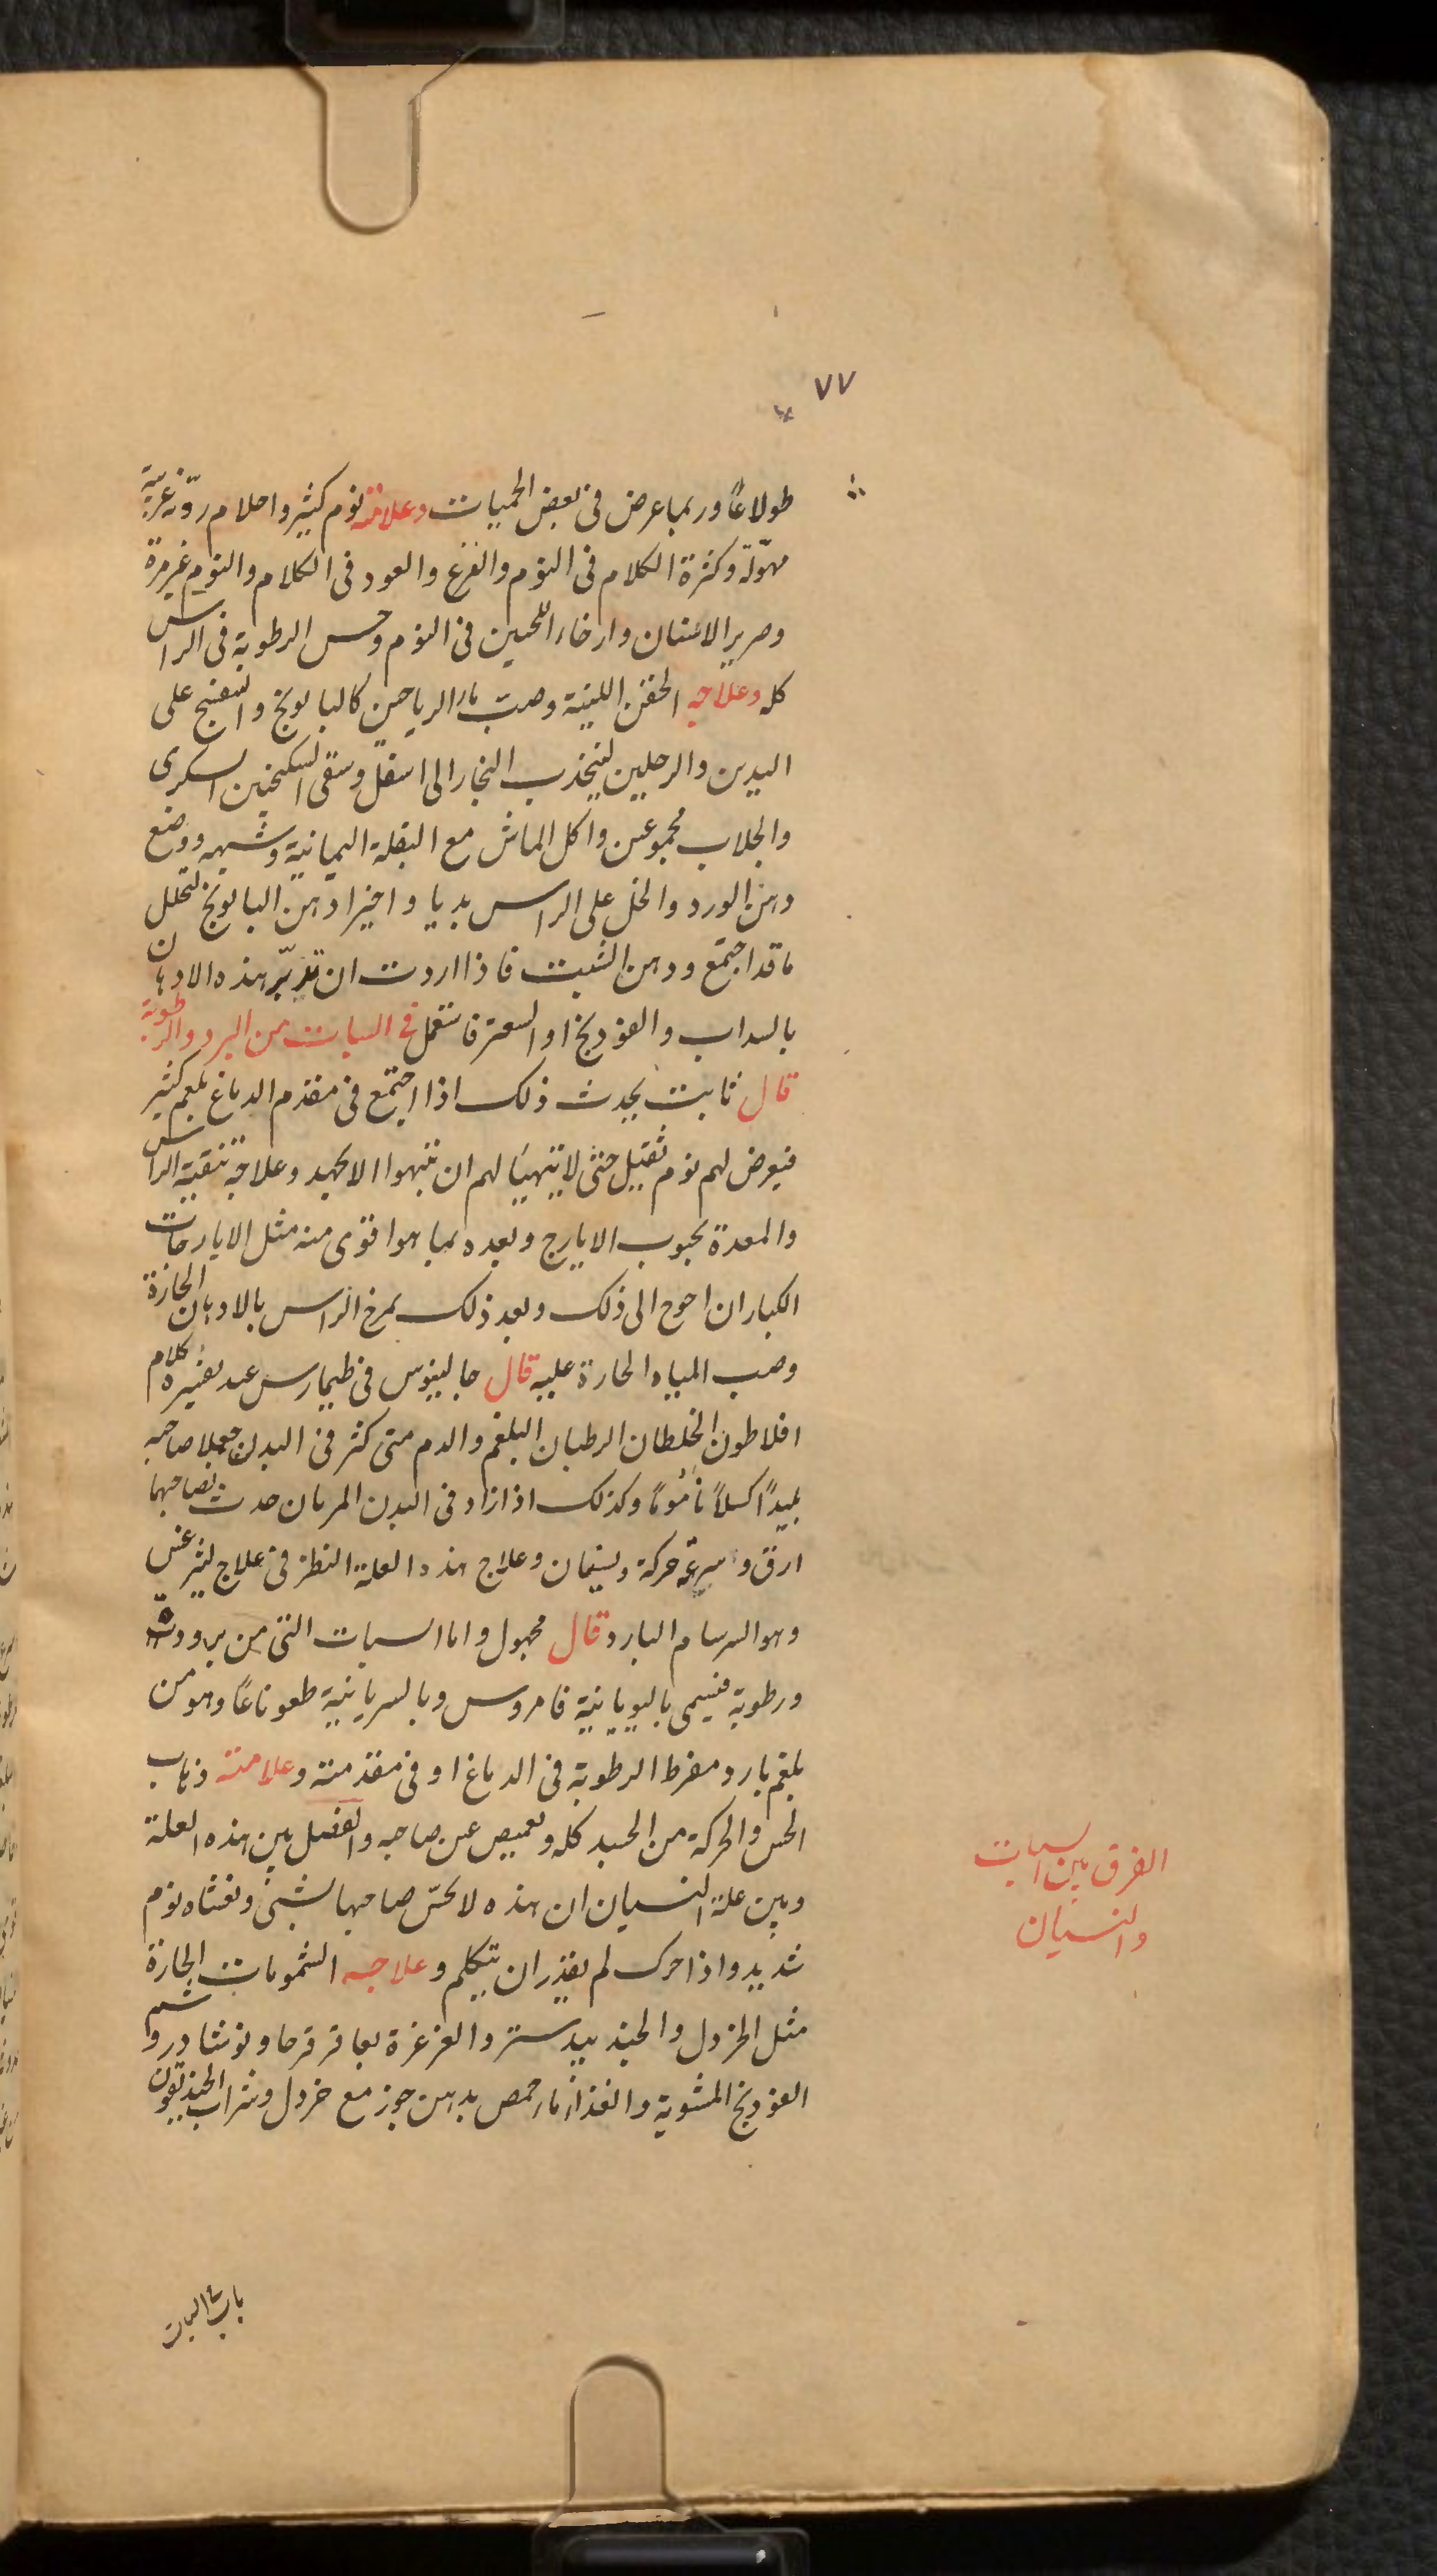 ٧٧
طولاعًا وربما عرض فى بعض الحميات وعلامته نوم كثير واحلام رديّة غريبة
مهوّلة وكثرة الكلام فى النوم والفزع والعود فى الكلام والنوم غير مرة
وصرير الاسنان وارخاء اللحيين فى النوم وحس الرطوبة فى الراس
كله وعلاجه الحقن اللينة وصبّ ماء الرياحين كالبابونج والبنفسج على
اليدين والرجلين لينجذب البخار الى اسفل وسقى السكنجبين السكرى
والجلاب مجموعين واكل الماش مع البقلة اليمانية وشبهه ووضع
دهن الورد والخل على الراس بديا واخيرا دهن البابونج لتحلل
ما قد اجتمع ودهن الشبت فاذا اردت ان تدبّر هذه الادهان
بالسداب والفودنج او السعتر فاستعمل فى السبات من البرد والرطوبة
قال ثابت يحدث ذلك اذا اجتمع فى مقدم الدماغ بلغم كثير
فيعرض لهم نوم ثقيل حتى لا يتهيأ لهم ان ينتبهوا الا بجهد وعلاجه تنقية الراس
والمعدة بحبوب الايارج وبعده بما هو اقوى منه مثل الايارجات
الكبار ان احوج الى ذلك وبعد ذلك يمرخ الراس بالادهان الحارة
وصب المياه الحارة عليه قال جالينوس فى طيمارس عند تفسيره كلام
افلاطون الخلطان الرطبان البلغم والدم متى كثر فى البدن جعلا صاحبه
بليدًا كسلاً نأمومًا وكذلك اذا زاد فى البدن المرتان حدث بصاحبهما
ارق وسرعة حركة ونسيان وعلاج هذه العلة النظر فى علاج ليثرغس
وهو السرسام البارد قال مجهول واما السبات التى من برودة
ورطوبة فيسمى باليونانية قاروس وبالسريانية طعوناعًا وهو من
بلغم بارد مفرط الرطوبة فى الدماغ او فى مقدمته وعلامته ذهاب
الحس والحركة من الجسد كله وتغميض عين صاحبه والفصل بين هذه العلة
وبين علة النسيان ان هذه لا يحسّ صاحبها بشىء وتغشاه نوم
شديد واذا حرك لم يقدر ان يتكلم وعلاجه الشمومات الحارة
مثل الخردل والجندبيدستر والغرغرة بعاقرقرحا ونوشادر وشم
الفودنج المشوية والغذاء ماء حمص بدهن جوز مع خردل وشراب الجنديقون
الفرق بين السبات
والنسيان
باب السبات